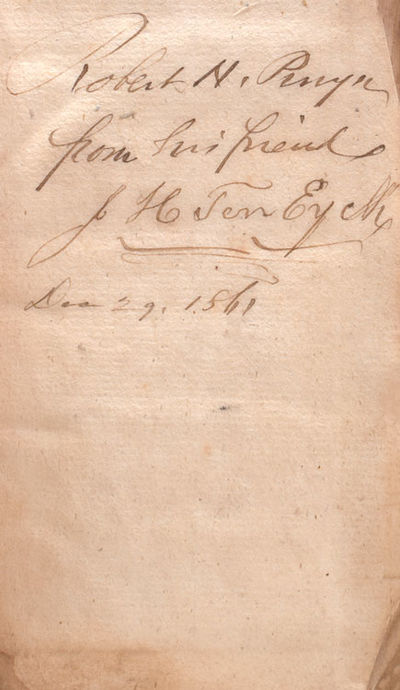 Robert H. Pruyn
from his friend
J H Ten Eyck
Dec 29. 1861